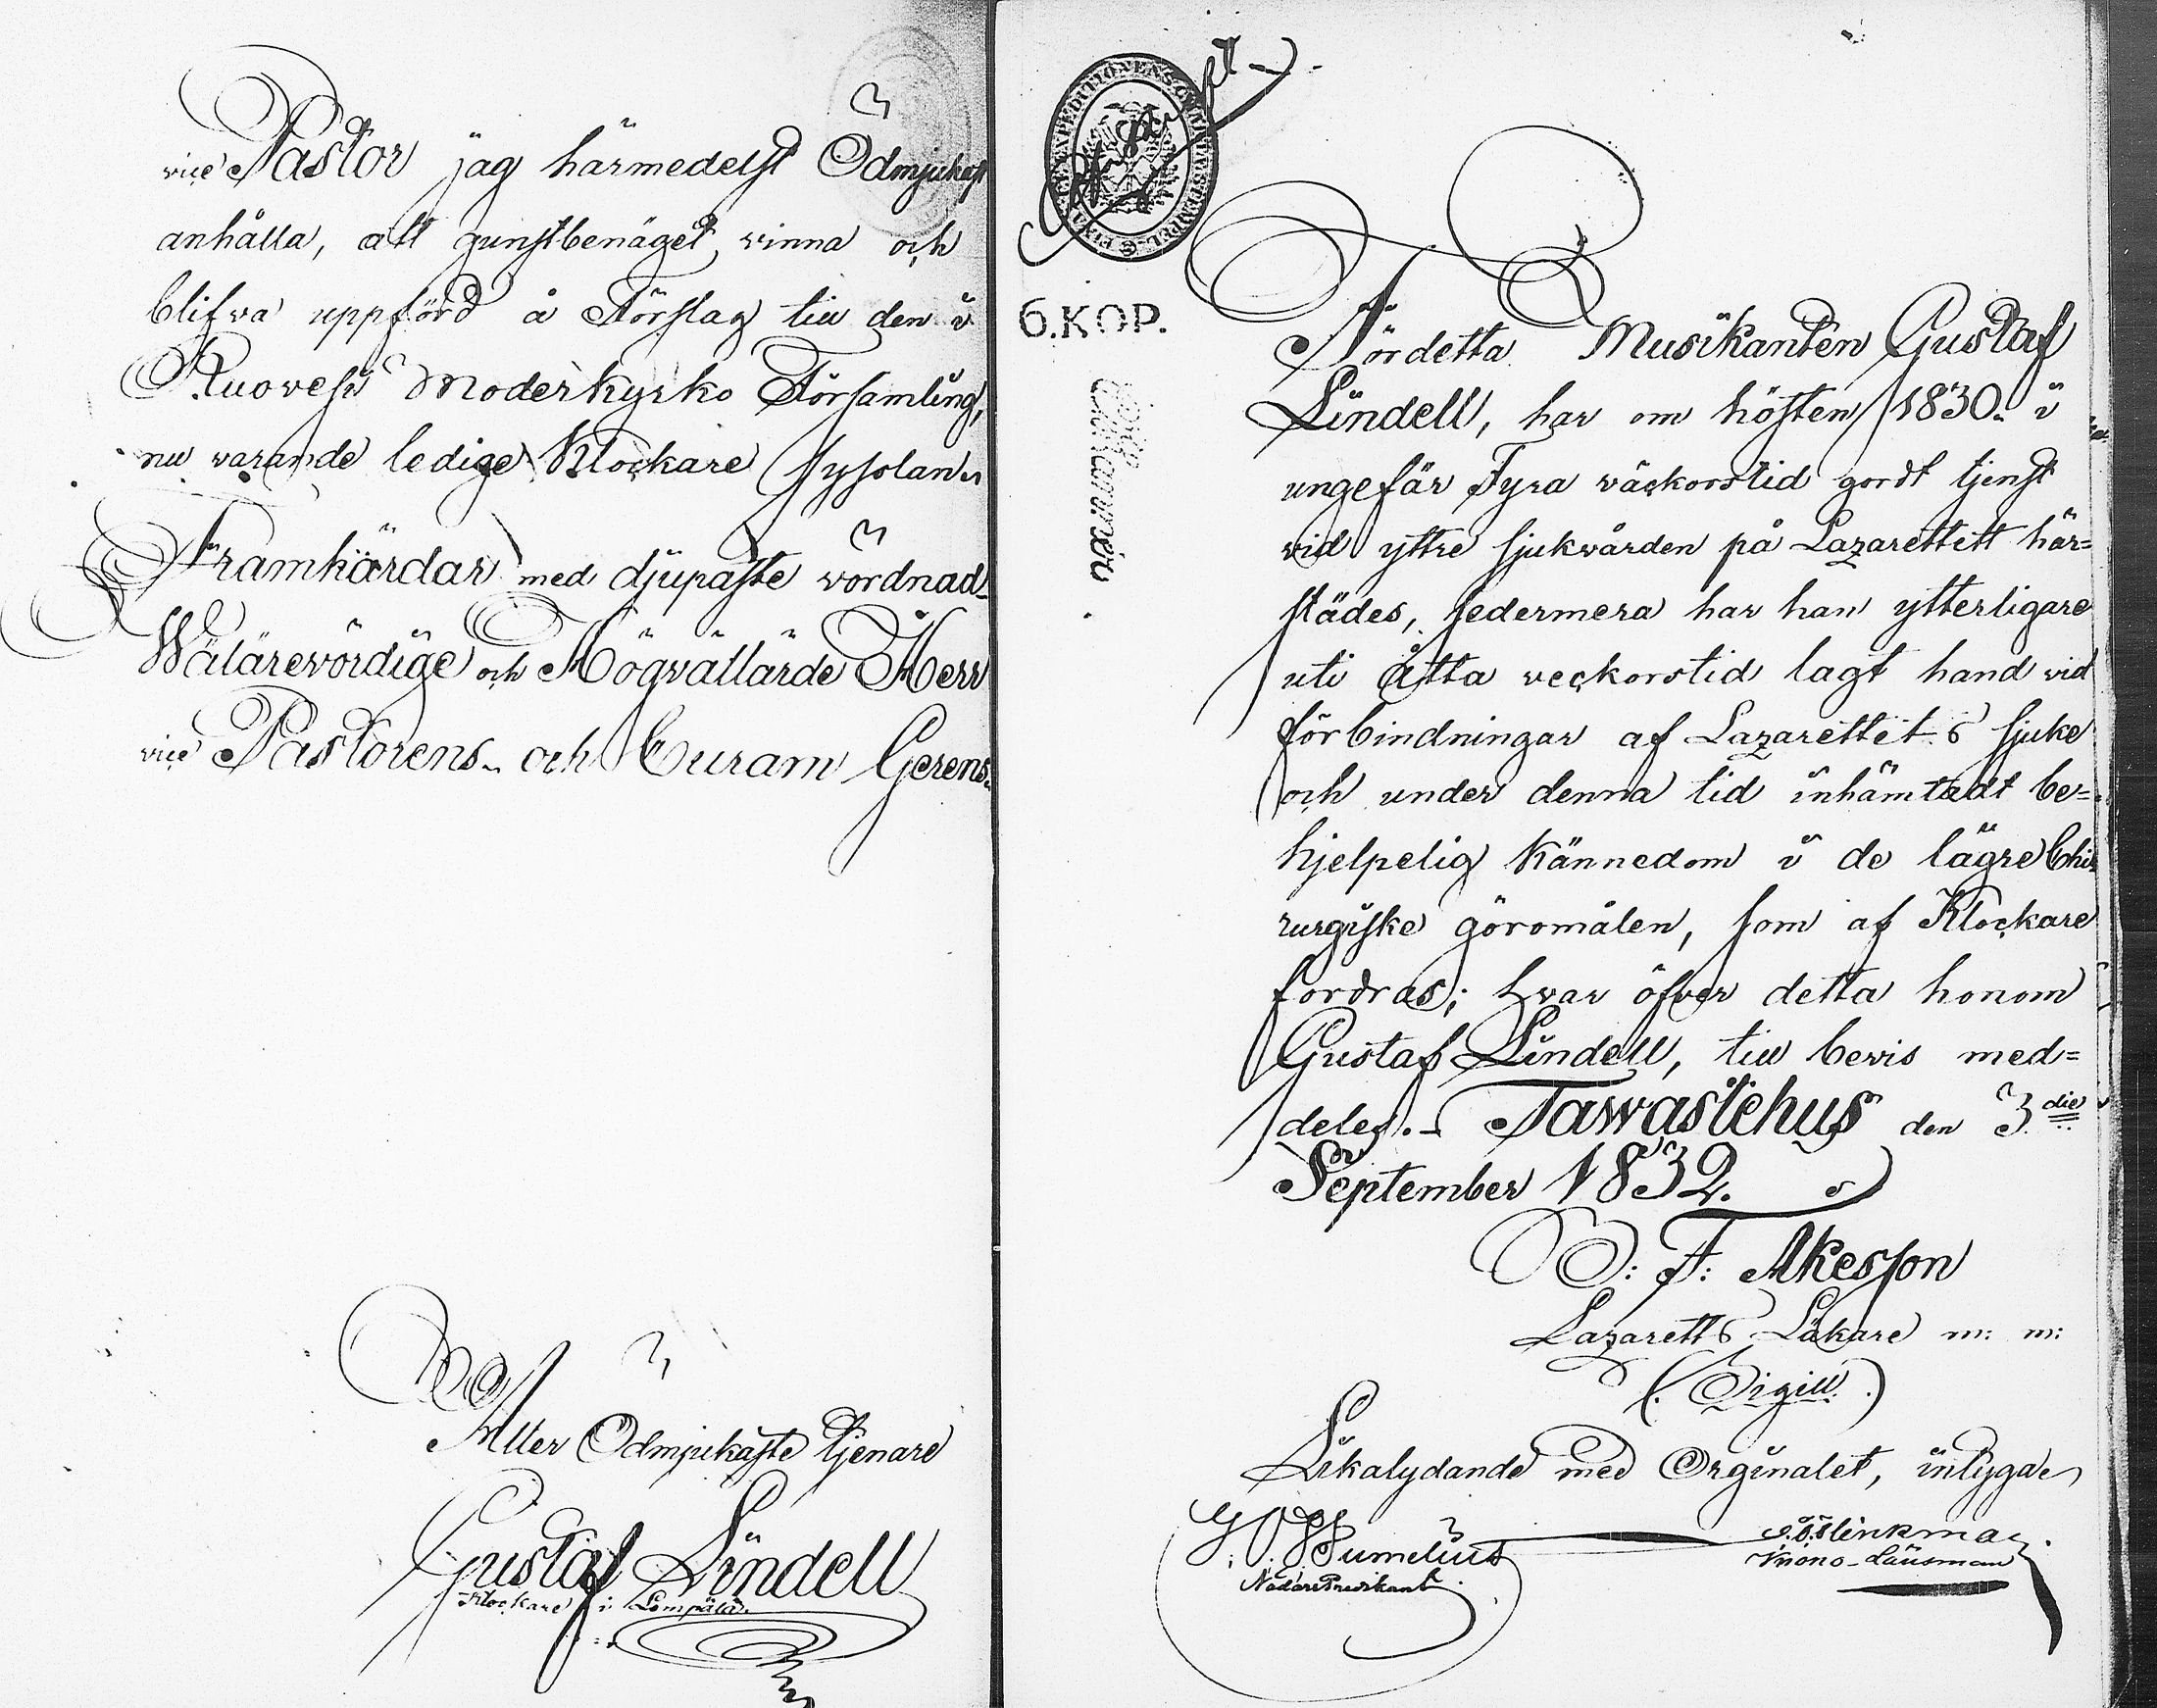 vice Pastor jag härmedelst Ödmjukast
anhålla, att gunstbenäget vinna och
blifva uppförd å Förslag till den i
Ruovesi Moderkyrko Församling,
nu varande ledige Klockare sysslan.
Framhärdar med djupaste vördnad
Wälärevördige och Högvällärde Herr
vice Pastorens och Curam Gerens
Aller Ödmjukaste tjenare
Gustaf Lindell
Klockare i Lempälä
EXPEDITIONENS CHARTÆ STEMPEL
6. KOP.
Fördetta Musikanten Gustaf
Lindell, har om hösten 1830. i
ungefär Fyra väckorstid gordt tjenst
vid yttre sjukvården på Lazarettett här=
städes, sedermera har han ytterligare
uti åtta veckorstid lagt hand vid
förbindningar af Lazarettets sjuke
och under denna tid inhämtadt be=
hjelpelig kännedom i de lägre Chi
rurgiske göromålen, som af Klockare
fordras; hvar öfver detta honom
Gustaf Lindell, till bevis med=
deles. Tawastehus den 3die
September 1832.
O: F: Åkesson
Lazaretts Läkare m: m:
(: Sigill :)
Likalydande med Orginalet, intyga
Nådåre Predikant
Krono-Länsman